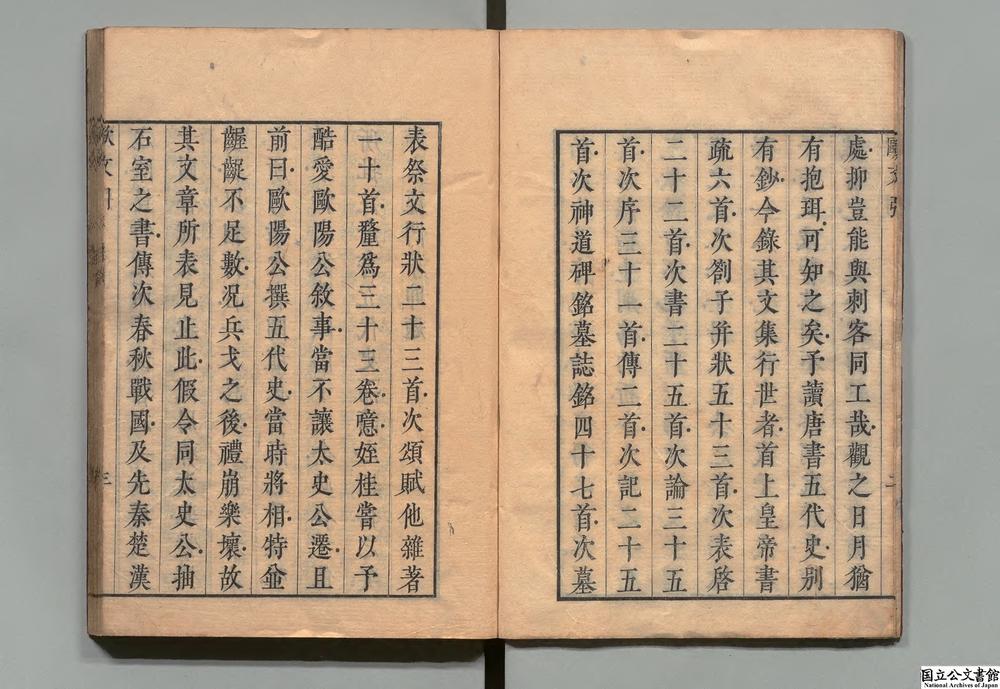 處抑豈能與刺客同工哉觀之日月猶
有抱珥可知之矣予讀唐書五代史别
有鈔今錄其文集行世者首上皇帝書
疏六首次劄子幷狀五十三首次表啓
二十二首次書二十五首次論三十五
首次序三十一首傳二首次記二十五
首次神道碑銘墓誌銘四十七首次墓
表祭文行狀二十三首次頌賦他雜著
一十首釐爲三十三卷噫姪桂嘗以予
酷愛歐陽公敘事當不讓太史公遷且
前曰歐陽公撰五代史當時將相特並
齷齪不足數况兵戈之後禮崩樂壞故
其文章所表見止此假令同太史公抽
石室之書傳次春秋戰國及先秦楚漢
三
国立公文書館
National Archives of Japan